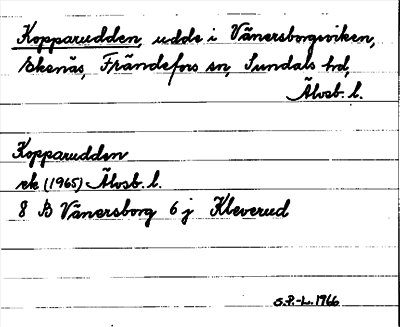 Kopparudden, udde i Vänersborgsviken,
Ekenäs, Frändefors sn, Sundals hd,
Älvsb. l.
Kopparudden
ek (1965) Älvsb. l.
8 B Vänersborg 6 j Kleverud
S.P.-L. 1966